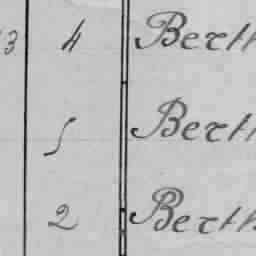 3 4 Berth
5 Berth
2 Berth